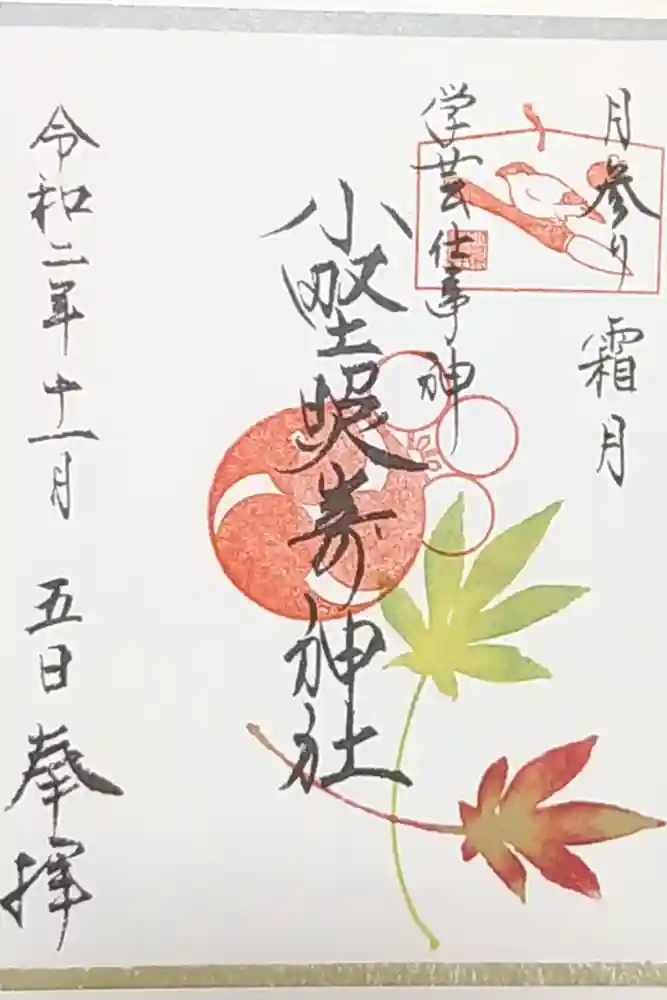 月参り 霜月
学芸仕事神
小野照崎神社
令和二年十一月 五日 奉拝